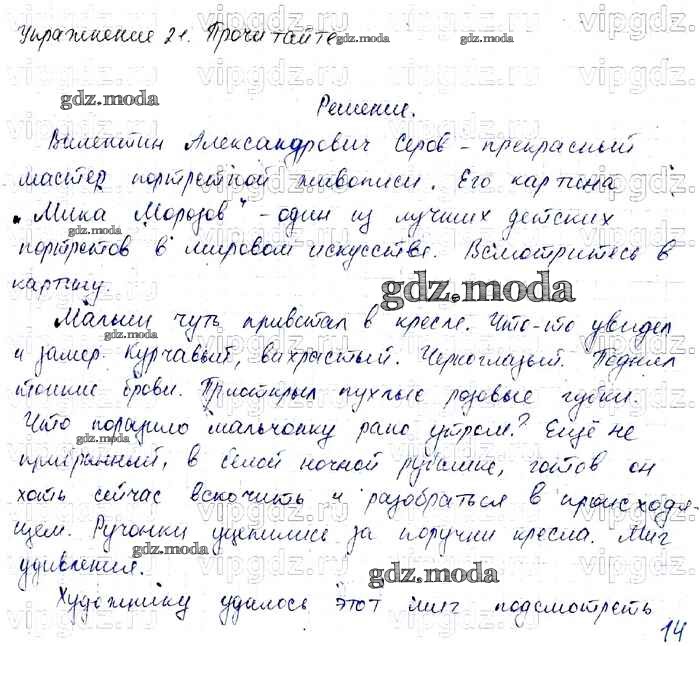 Упражнение 21. Прочитайте
gdz.moda
gdz.moda
Решение.
Валентин Александрович Серов – прекрасный
мастер портретной живописи. Его картина
„Мика Морозов" – один из лучших детских
портретов в мировом искусстве. Всмотритесь в
картину.
gdz.moda
Малыш чуть привстал в кресле. Что-то увидел
и замер. Курчавый, вихрастый. Черноглазый. Поднял
тонкие брови. Приоткрыл пухлые розовые губки.
Что поразило мальчонку рано утром? Ещё не
прибранный, в белой ночной рубашке, готов он
хоть сейчас вскочить и разобраться в происходя-
щем. Ручонки уцепились за поручни кресла. Миг
удивления.
gdz.moda
Художнику удалось этот миг подсмотреть
14